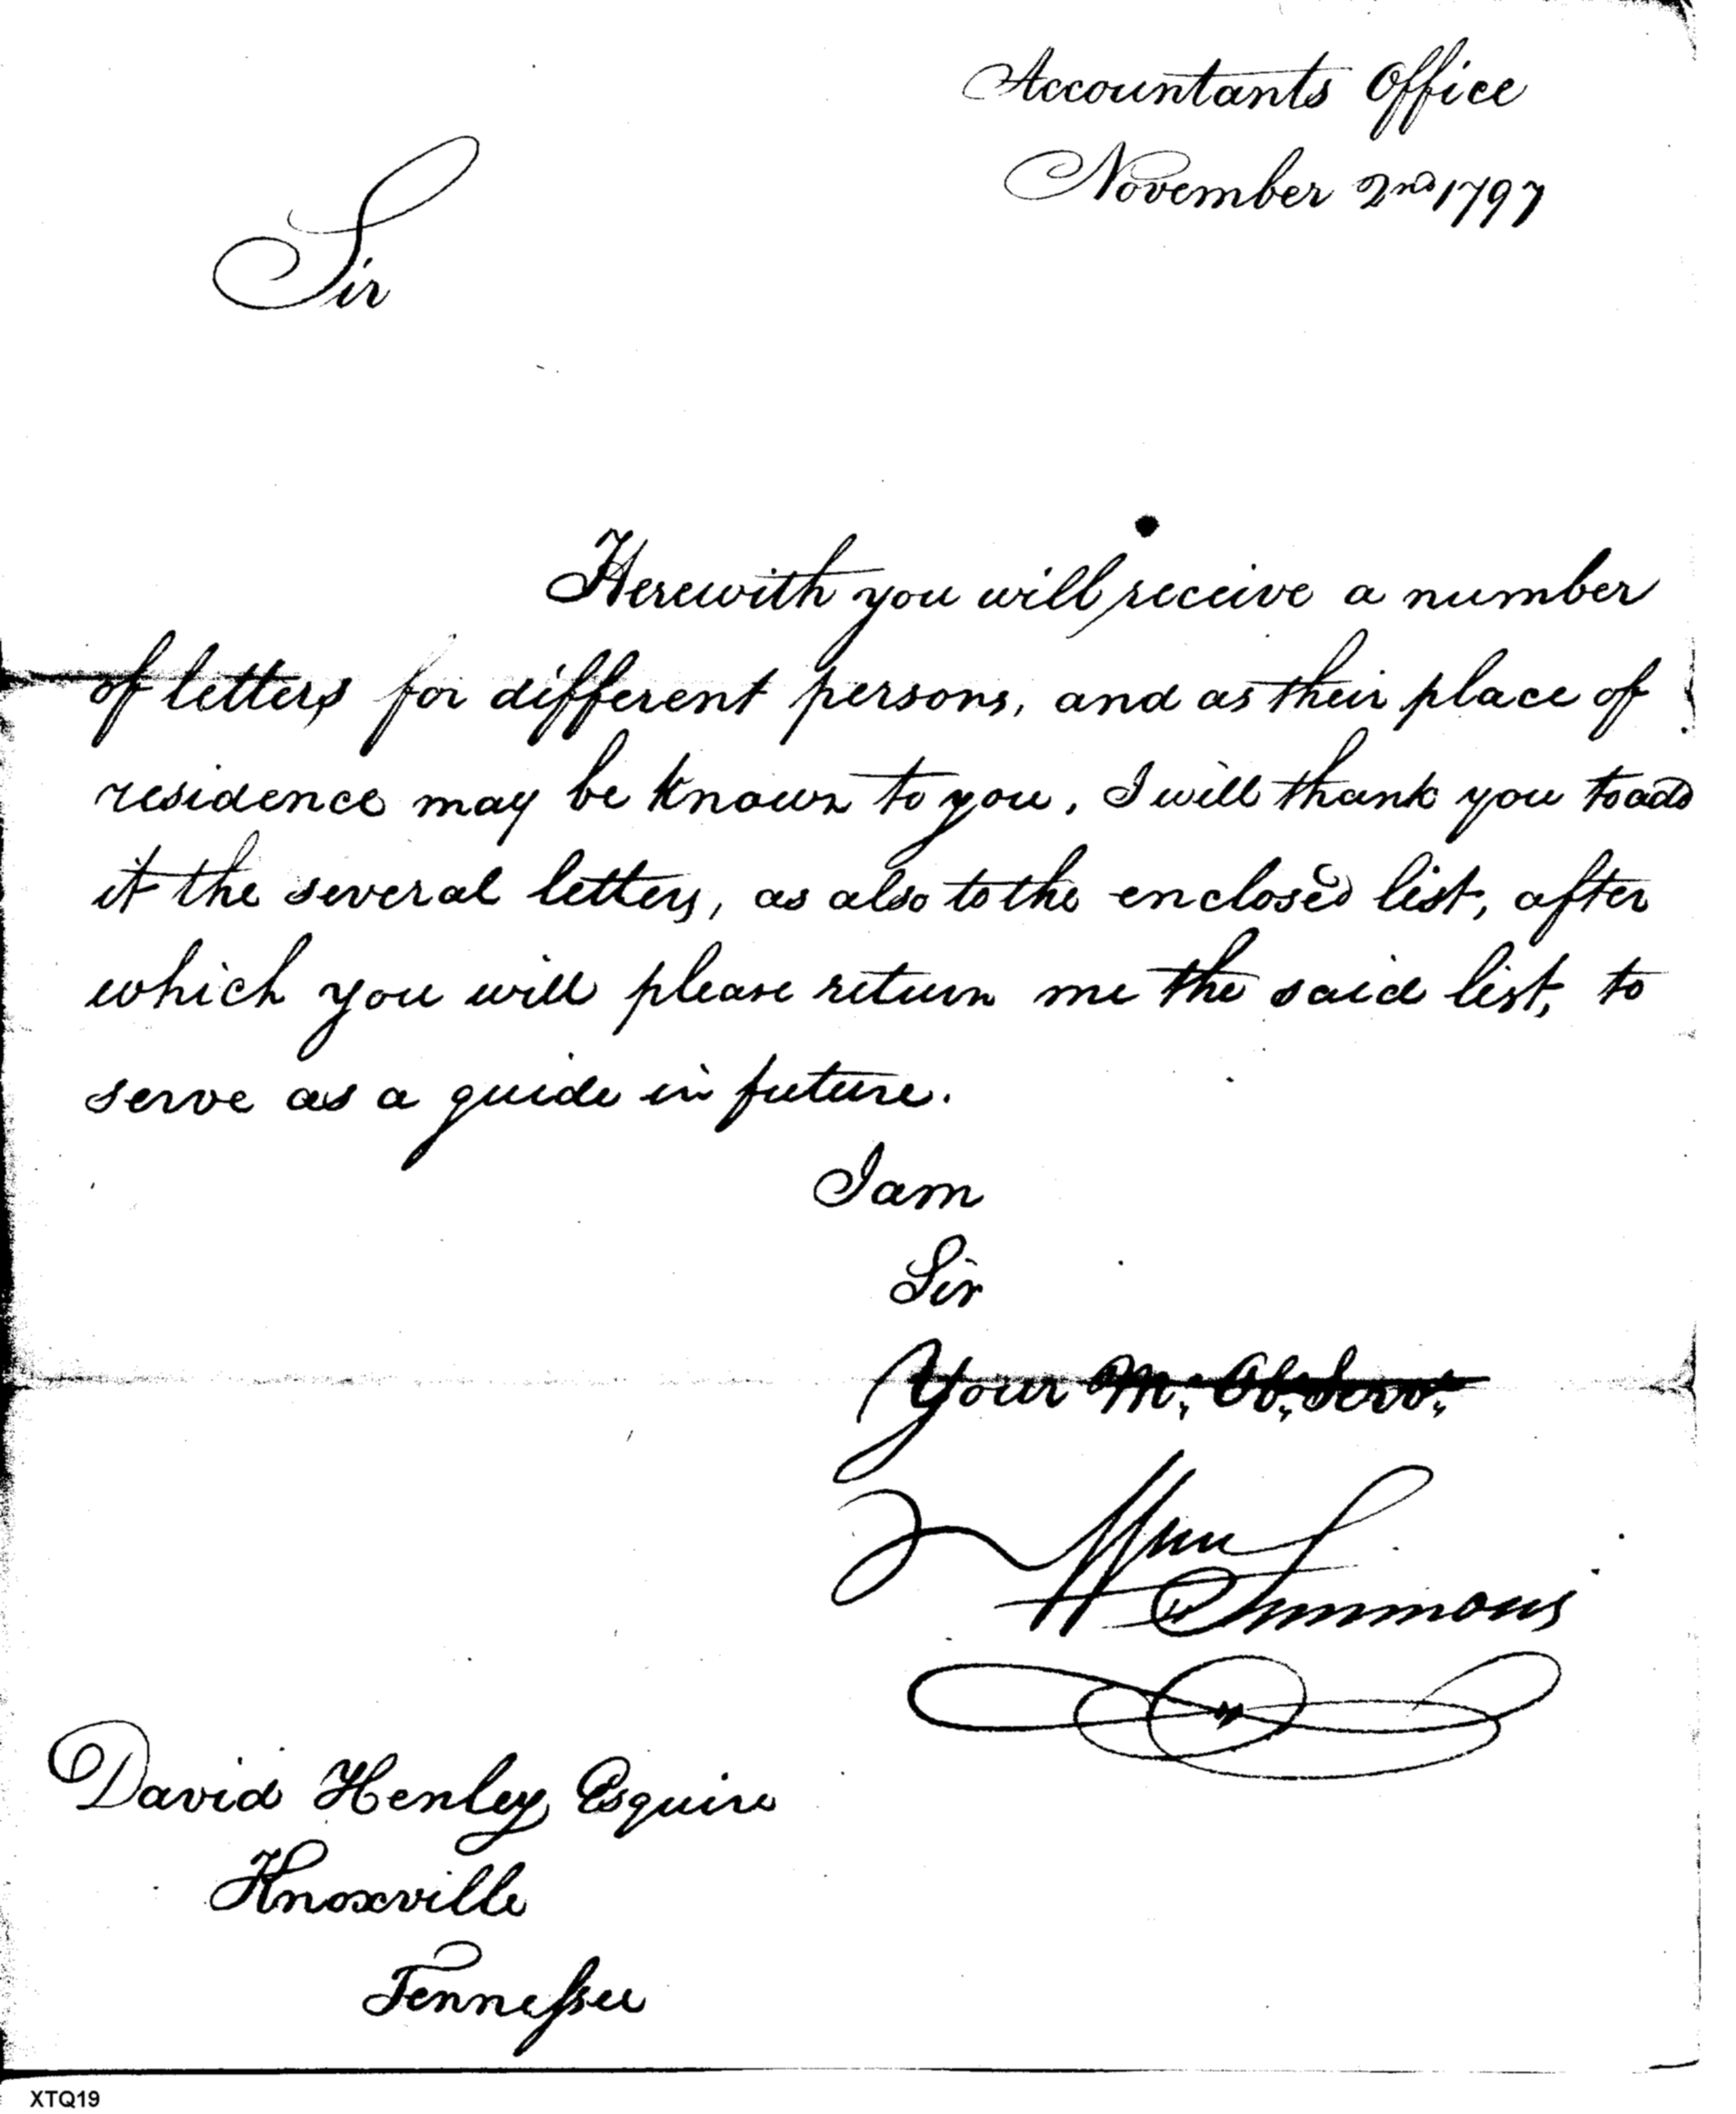 Accountants Office
November 2nd 1797
Sir
Herewith you will receive a number
of letters for different persons, and as their place of
residence may be known to you, I will thank you to add
it the several letters, as also to the enclosed list, after
which you will please return me the said list, to
serve as a guide in future.
I am
Sir
Your M. Ob. Servt.
Wm Simmons
David Henley Esquire
Knoxville
Tennessee
XTQ19